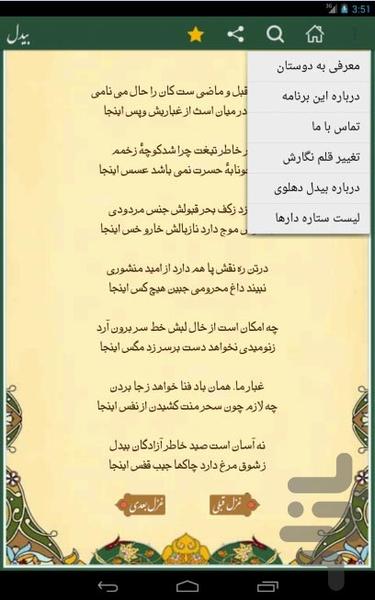 3:51
بیدل
معرفی به دوستان
درباره این برنامه
تماس با ما
تغییر قلم نگارش
درباره بیدل دهلوی
لیست ستاره دارها
قبل و ماضی ست کان را حال می نامی
در میان است از غباریش وپس اینجا
خاطر تیغت چرا شدکوچهٔ زخمم
حسرت نمی باشد عسس اینجا
زد زکف بحر قبولش جنس مردودی
موج دارد نازبالش خارو خس اینجا
درتن ره نقش پا هم دارد از امید منشوری
نبیند داغ محرومی جبین هیچ کس اینجا
چه امکان است از خال لبش خط سر برون آرد
زنومیدی نخواهد دست برسر زد مگس اینجا
غبار ما. همان باد فنا خواهد ز جا بردن
چه لازم چون سحر منت کشیدن از نفس اینجا
نه آسان است صید خاطر آزادگان بیدل
زشوق مرغ دارد چاکها جیب قفس اینجا
غزل قبلی
غزل بعدی
بازار